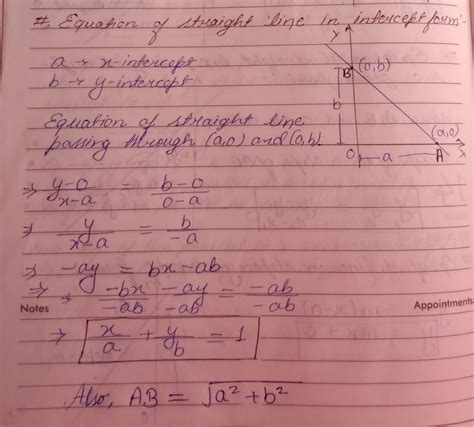 #. Equation of straight line in intercept form:-
Y
a → x-intercept
B (0,b)
b → y-intercept
b
Equation of straight line
passing through (a,0) and (0,b)
(a,0)
O a A X
⇒ y-0/x-a = b-0/0-a
⇒ y/x-a = b/-a
⇒ -ay = bx-ab
⇒ -bx/-ab -ay/-ab = -ab/-ab
Notes Appointments
⇒ x/a + y/b = 1
Also, AB = √a²+b²